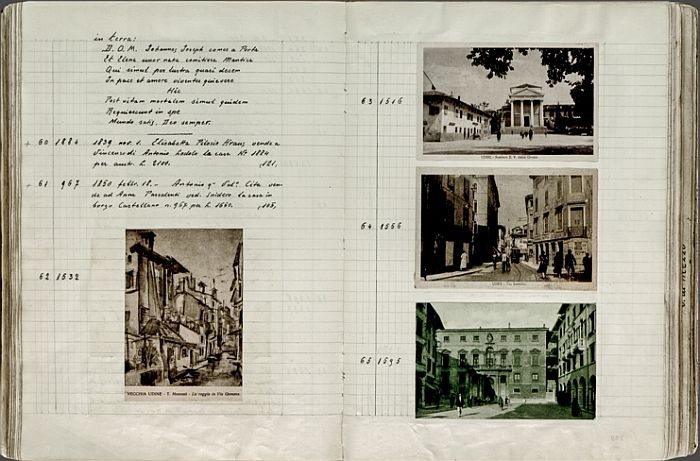 in terra:
D. O. M. Johannes Joseph comes a Porta
Et Elena uxor nata comitissa Mantica
Qui simul per lustra quasi decem
In pace et amore viventes quievere
Hic
Post vitam mortalem simul quidem
Requiescunt in spe
Mundo satis, Deo semper.
+ 60 1884 1839 nov. 1. Elisabetta Pilosio Kraus vende a
Vincenzo di Antonio Lodolo la casa N° 1884
per austr. L. 2100. ,121,
+ 61 967 1850 febbr. 18. - Antonio q.m Val.o Cita ven-
de ad Anna ved. Snidero la casa in
borgo Castellano n. 967 per L. 1660. ,105,
62 1532
VECCHIA UDINE - T. - La roggia in Via Gemona
63 1516
UDINE - Santuario B. V. delle Grazie
64 1566
UDINE - Via
65 1595